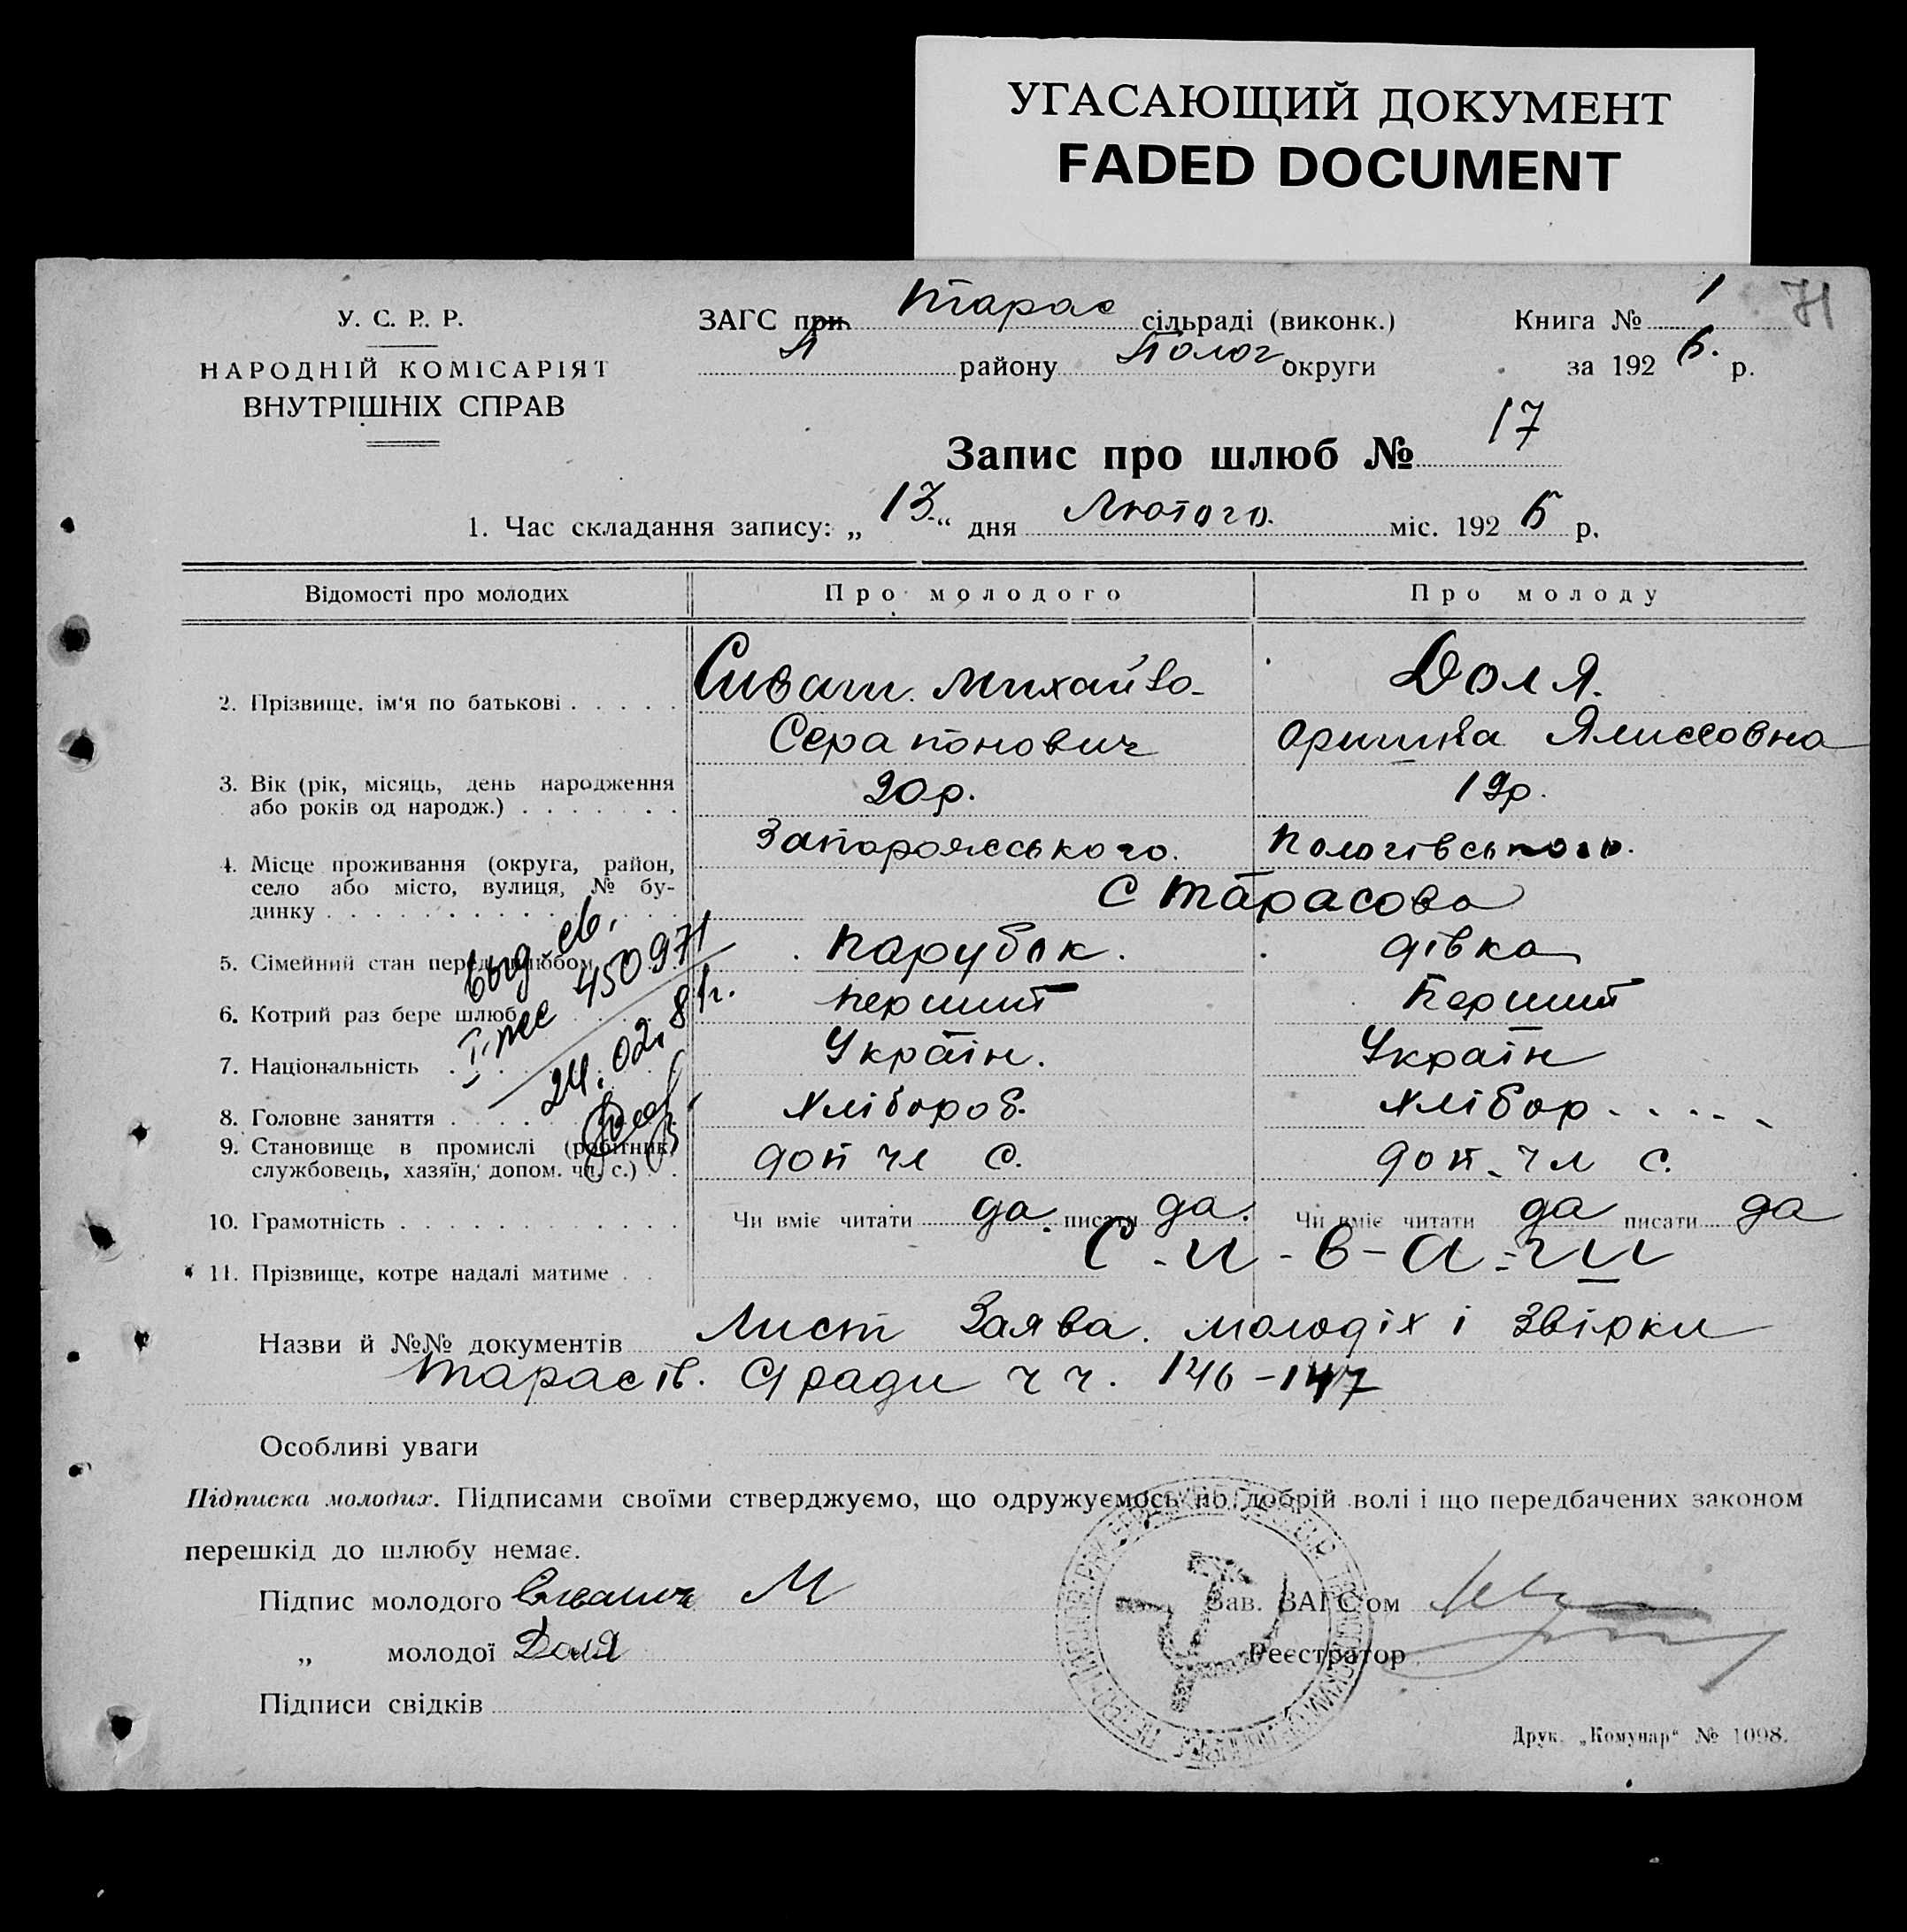 УГАСАЮЩИЙ ДОКУМЕНТ
FADED DOCUMENT
У. С. Р. Р.
НАРОДНІЙ КОМІСАРІЯТ
ВНУТРІШНІХ СПРАВ
ЗАГС при Тарас сільраді (виконк.)
П району Полог округи
Книга № 1 71
за 1926. р.
Запис про шлюб № 17
1. Час складання запису: „ 13 “ дня Лютого. міс. 1926 р.
Відомості про молодих Про молодого Про молоду
2. Прізвище, ім‘я по батькові Сиваш. Михайло Доля.
Серапонович
3. Вік (рік, місяць, день народження
або років од народж.) 20р. 19р.
4. Місце проживання (округа, район, Запорожського. Пологівського.
село або місто, вулиця, № бу-
динку С Тарасова
5. Сімейний стан перед шлюбом Парубок. дівка
6. Котрий раз бере шлюб Перший Перший
7. Національність Україн. Україн
8. Головне заняття Хлібороб. Хлібор
9. Становище в промислі (робітник,
службовець, хазяїн, допом. чл. с.) доп чл с. доп. чл с.
выд. св.
450971
24.02.81г.
10. Грамотність Чи вміє читати да писати да. Чи вміє читати да писати да
11. Прізвище, котре надалі матиме С-и-в-а-ш
Назви й №№ документів Лист Заява. молодіх і звірки
Тарасів. С/ради ч ч. 146-147
Особливі уваги
Підписка молодих. Підписами своїми стверджуємо, що одружуємось по добрій волі і що передбачених законом
перешкід до шлюбу немає.
Підпис молодого Сиваш М
„ молодої Доля
Підписи свідків
Зав. ЗАГС‘ом
Реєстратор
Друк. „Комунар“ № 1098.